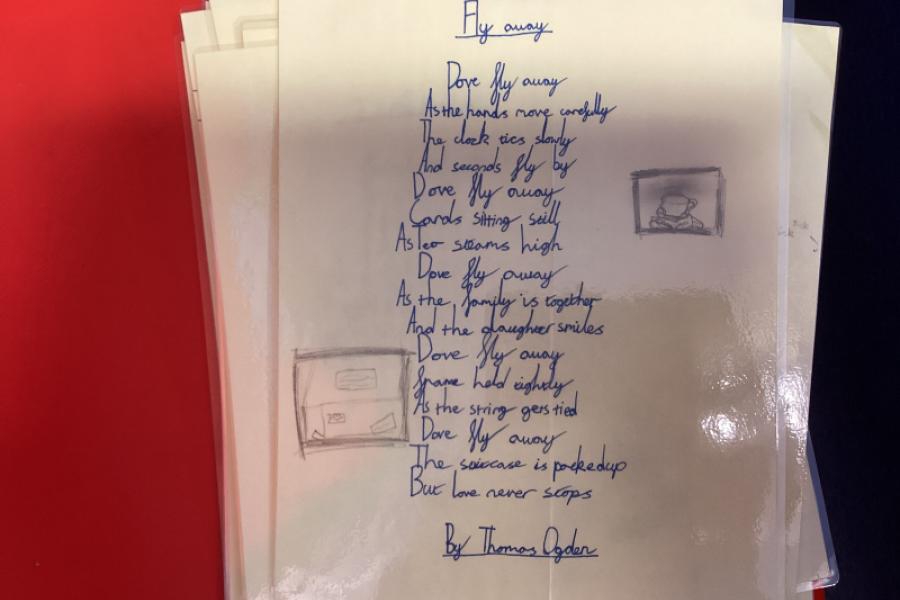 Fly away
Dove fly away
As the hands move carefully
The clock tics slowly
And seconds fly by
Dove fly away
Cards sitting still
As Tea steams high
Dove fly away
As the family is together
And the daughter smiles
Dove fly away
frame held tightly
As the string gets tied
Dove fly away
The suitcase is packed up
But love never stops
By Thomas Ogden